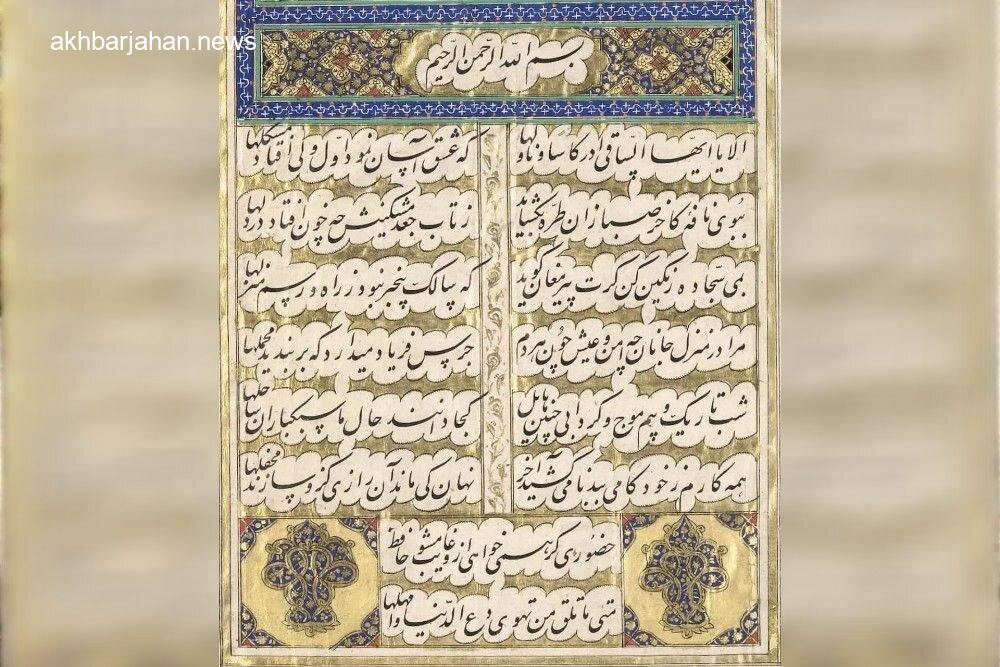 akhbarjahan.news
بسم الله الرحمن الرحیم
الا یا ایها الساقی ادر کاسا و ناولها که عشق آسان نمود اول ولی افتاد مشکلها
ببوی نافه کاخر صبا زان طره بگشاید ز تاب جعد مشکینش چه خون افتاد در دلها
بمی سجاده رنگین کن گرت پیر مغان گوید که سالک بیخبر نبود ز راه و رسم منزلها
مرا در منزل جانان چه امن و عیش چون هر دم جرس فریاد میدارد که بر بندید محملها
شب تاریک و بیم موج و گردابی چنین هایل کجا دانند حال ما سبکباران ساحلها
همه کارم ز خود کامی ببدنامی کشید آخر نهان کی ماند آن رازی کزو سازند محفلها
حضوری گر همی خواهی ازو غایب مشو حافظ
متی ما تلق من تهوی دع الدنیا و اهملها